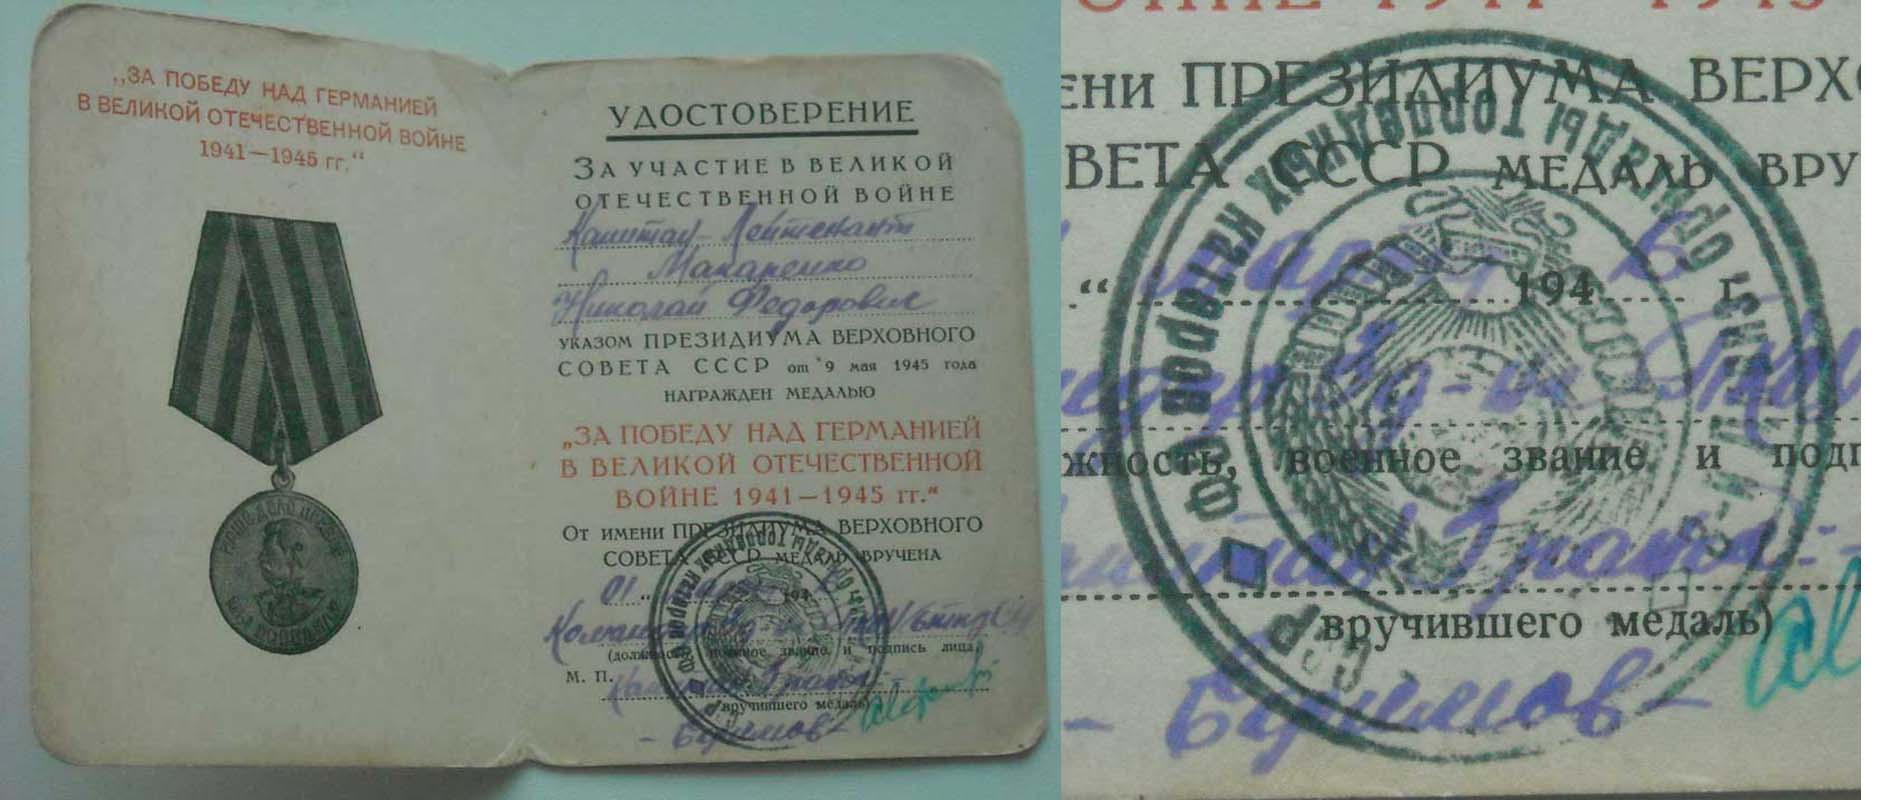 „ЗА ПОБЕДУ НАД ГЕРМАНИЕЙ
В ВЕЛИКОЙ ОТЕЧЕСТВЕННОЙ ВОЙНЕ
1941—1945 гг.“
УДОСТОВЕРЕНИЕ
ЗА УЧАСТИЕ В ВЕЛИКОЙ
ОТЕЧЕСТВЕННОЙ ВОЙНЕ
Капитан-Лейтенант
Макаренко
Николай Федорович
УКАЗОМ ПРЕЗИДИУМА ВЕРХОВНОГО
СОВЕТА СССР от 9 мая 1945 года
НАГРАЖДЕН МЕДАЛЬЮ
„ЗА ПОБЕДУ НАД ГЕРМАНИЕЙ
В ВЕЛИКОЙ ОТЕЧЕСТВЕННОЙ
ВОЙНЕ 1941—1945 гг.“
От имени ПРЕЗИДИУМА ВЕРХОВНОГО
СОВЕТА СССР МЕДАЛЬ ВРУЧЕНА
01 194
Командир
(должность, военное звание и подпись лица,
М. П.
Капитан 3 ранга-
вручившего медаль)
- Ефимов -
ени ПРЕЗИДИУМА ВЕРХО
ОВЕТА СССР МЕДАЛЬ ВРУ
“ марта 6 194 г.
жность, военное звание и подп
3 ранга-
вручившего медаль)
- Ефимов -
бригады торпедных катеров